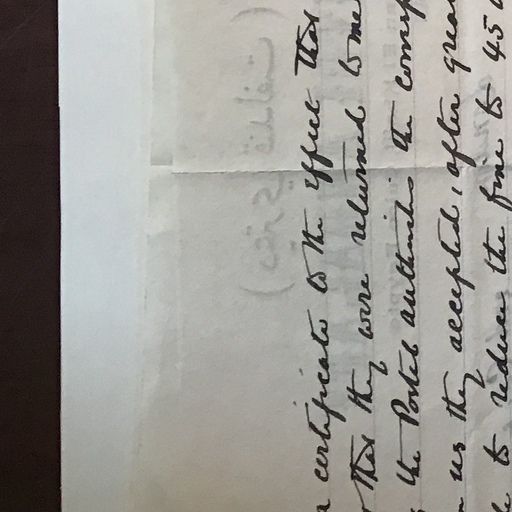 a certificate to the effect that
that they were returned to me
the Postal authorities the corresp
us they accepted, after grea
to reduce the fine to 45